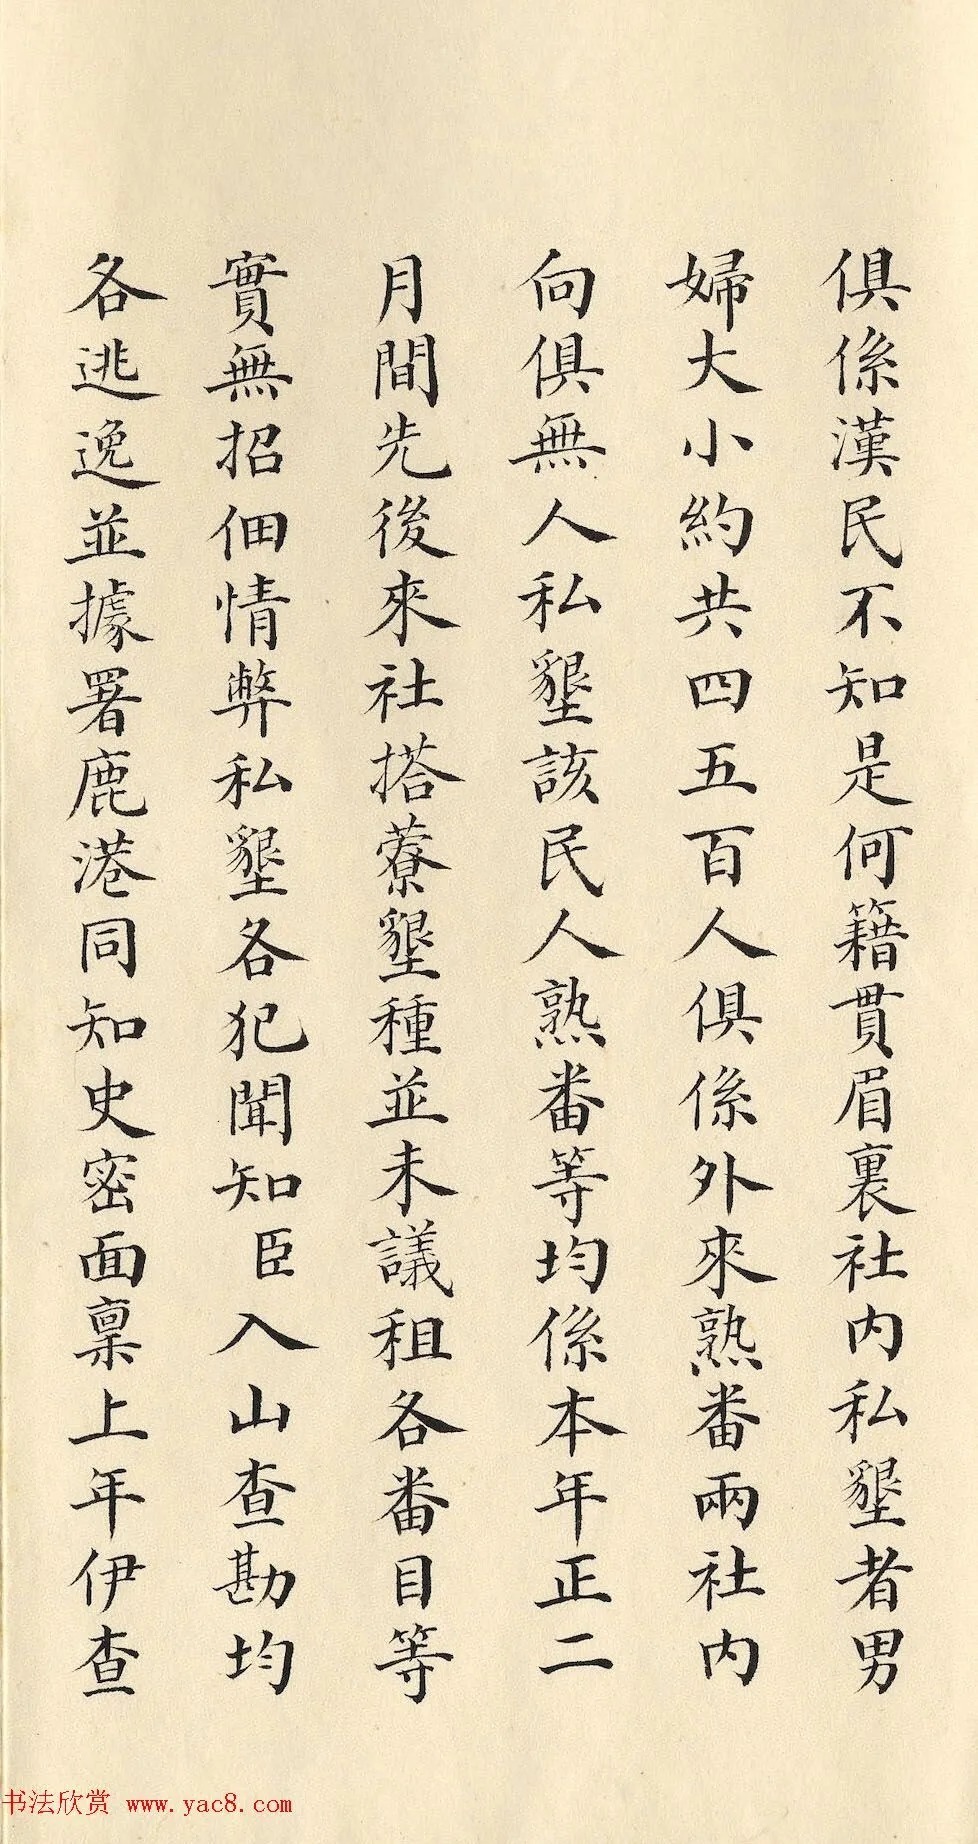 俱係漢民不知是何籍貫眉裏社内私墾者男
婦大小約共四五百人俱係外來熟番兩社内
向俱無人私墾該民人熟番等均係本年正二
月間先後來社搭藔墾種並未議租各番目等
實無招佃情弊私墾各犯聞知臣入山查勘均
各逃逸並據署鹿港同知史密面稟上年伊查
书法欣赏 www.yac8.com